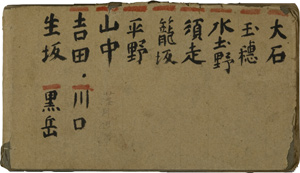 大石
玉穗
水土野
須走
籠坂
平野
山中
吉田・川口
生坂 黒岳